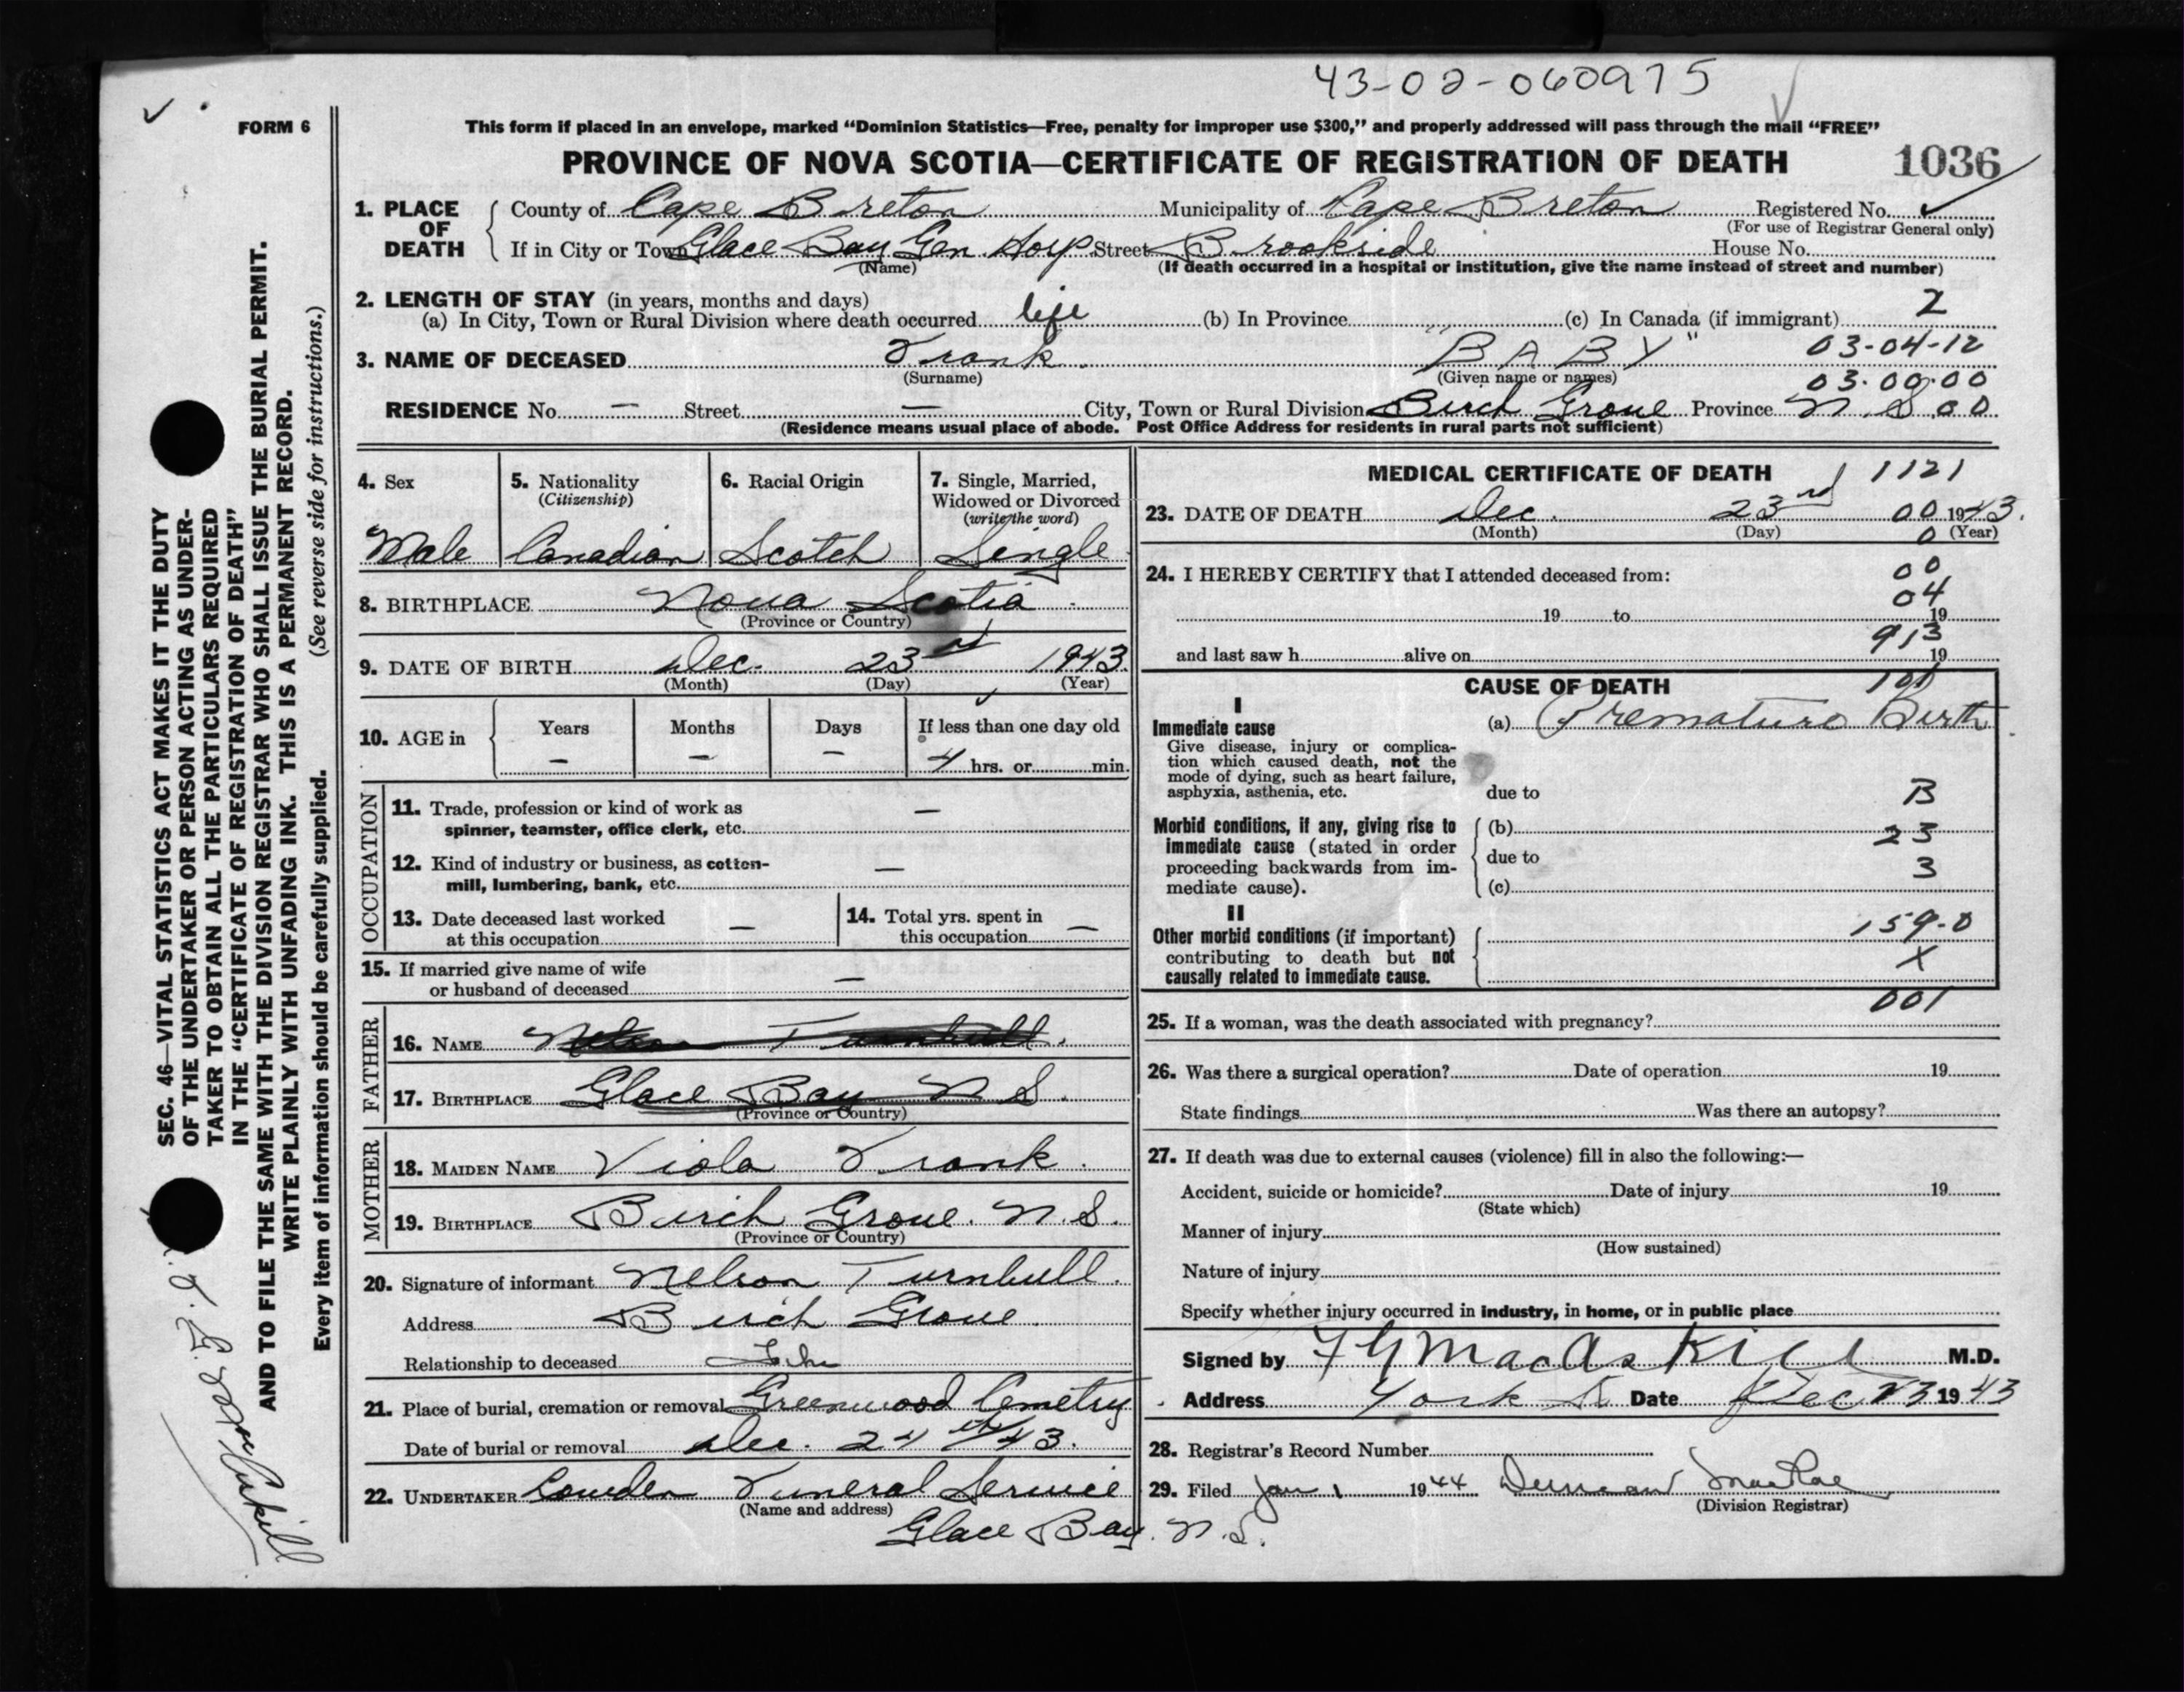 43-02-060975
FORM 6
This form if placed in an envelope, marked "Dominion Statistics—Free, penalty for improper use $300," and properly addressed will pass through the mail "FREE"
PROVINCE OF NOVA SCOTIA—CERTIFICATE OF REGISTRATION OF DEATH 1036
1. PLACE OF DEATH
County of Cape Breton Municipality of Cape Breton Registered No.
(For use of Registrar General only)
If in City or Town Glace Bay Gen. Hosp Street Brookside House No.
(Name) (If death occurred in a hospital or institution, give the name instead of street and number)
2. LENGTH OF STAY (in years, months and days)
(a) In City, Town or Rural Division where death occurred life (b) In Province (c) In Canada (if immigrant) 2
3. NAME OF DECEASED Frank "BABY" 03-04-12
(Surname) (Given name or names) 03-00-00
RESIDENCE No. — Street — City, Town or Rural Division Birch Grove Province N.S. 00
(Residence means usual place of abode. Post Office Address for residents in rural parts not sufficient)
4. Sex
Male
5. Nationality
(Citizenship)
Canadian
6. Racial Origin
Scotch
7. Single, Married,
Widowed or Divorced
(write the word)
Single
8. BIRTHPLACE Nova Scotia
(Province or Country)
9. DATE OF BIRTH Dec. 23rd 1943.
(Month) (Day) (Year)
10. AGE in
Years Months Days If less than one day old
— — — 4 hrs. or min.
OCCUPATION
11. Trade, profession or kind of work as
spinner, teamster, office clerk, etc. —
12. Kind of industry or business, as cotton-
mill, lumbering, bank, etc. —
13. Date deceased last worked
at this occupation —
14. Total yrs. spent in
this occupation —
15. If married give name of wife
or husband of deceased —
FATHER
16. NAME Nelson Turnbull.
17. BIRTHPLACE Glace Bay N S.
(Province or Country)
MOTHER
18. MAIDEN NAME Viola Frank.
19. BIRTHPLACE Birch Grove. N.S.
(Province or Country)
20. Signature of informant Nelson Turnbull.
Address Birch Grove.
Relationship to deceased
21. Place of burial, cremation or removal Greenwood Cemetry
Date of burial or removal Dec. 24th/43.
22. UNDERTAKER Funeral Service
(Name and address)
Glace Bay. N.S.
MEDICAL CERTIFICATE OF DEATH 1121
23. DATE OF DEATH Dec. 23rd 00 1943.
(Month) (Day) 0 (Year)
24. I HEREBY CERTIFY that I attended deceased from: 00
04
19 to 19
913
and last saw h alive on 19
CAUSE OF DEATH 101
I
Immediate cause (a) Premature Birth
Give disease, injury or complica-
tion which caused death, not the
mode of dying, such as heart failure,
asphyxia, asthenia, etc. due to B
Morbid conditions, if any, giving rise to (b) 23
immediate cause (stated in order due to
proceeding backwards from im- 3
mediate cause). (c)
II
159-0
Other morbid conditions (if important)
contributing to death but not X
causally related to immediate cause.
001
25. If a woman, was the death associated with pregnancy?
26. Was there a surgical operation? Date of operation 19
State findings Was there an autopsy?
27. If death was due to external causes (violence) fill in also the following:—
Accident, suicide or homicide? Date of injury 19
(State which)
Manner of injury
(How sustained)
Nature of injury
Specify whether injury occurred in industry, in home, or in public place
Signed by F G MacAskill M.D.
Address York St Date Dec 23 1943
28. Registrar's Record Number
29. Filed Jan 1 1944 Duncan MacRae
(Division Registrar)
SEC. 46—VITAL STATISTICS ACT MAKES IT THE DUTY
OF THE UNDERTAKER OR PERSON ACTING AS UNDER-
TAKER TO OBTAIN ALL THE PARTICULARS REQUIRED
IN THE "CERTIFICATE OF REGISTRATION OF DEATH"
AND TO FILE THE SAME WITH THE DIVISION REGISTRAR WHO SHALL ISSUE THE BURIAL PERMIT.
WRITE PLAINLY WITH UNFADING INK. THIS IS A PERMANENT RECORD.
Every item of information should be carefully supplied. (See reverse side for instructions.)